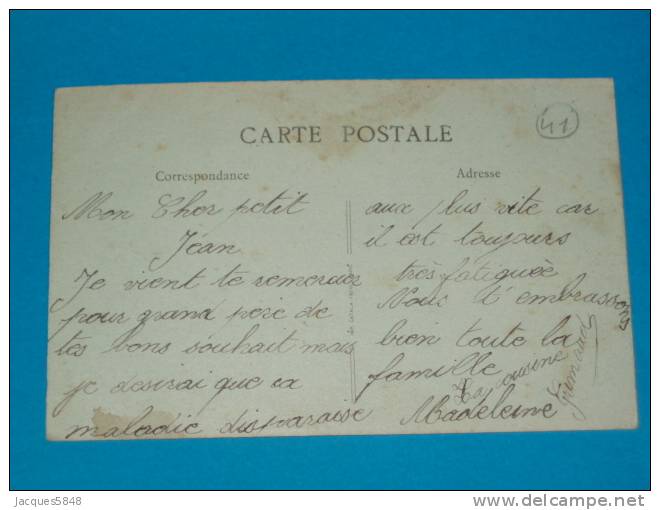 CARTE POSTALE
41
Correspondance
Adresse
Mon Cher petit
Jean
Je vient te remercier
pour grand père de
tes bons souhait mais
je desirai que ca
maladie disparaise
aux plus vite car
il est toujours
très fatiguée
Nous t'embrassons
bien toute la
famille
Ta cousine
Madeleine
Jacques5848
delcampe.net